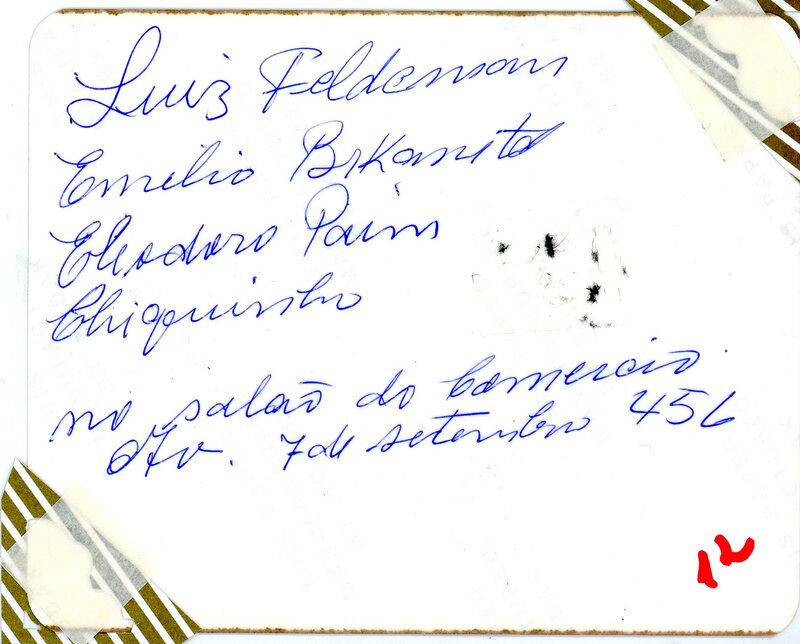 Luiz Feldensons
Emilio
Eleodoro Paim
Chiquinho
no salão do Comercio
Av. 7 de setembro 456
12